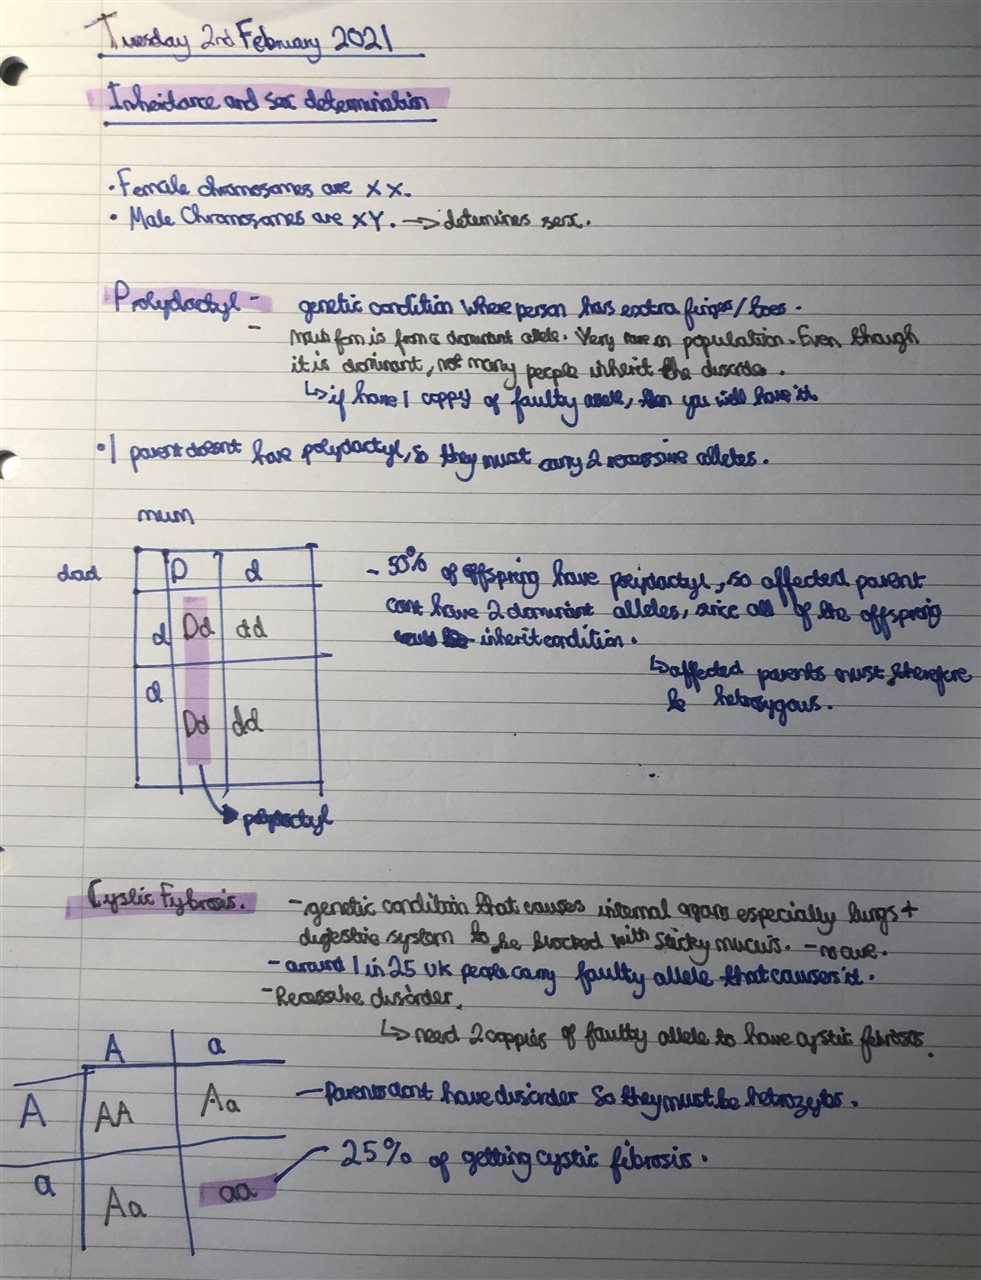 Tuesday 2nd February 2021
Inheritance and sex determination
• Female chromosomes are XX.
• Male Chromosomes are XY. → determines sex.
Polydactyl - genetic condition where person has extra fingers/toes.
- main form is from a dominant allele. Very rare in population. Even though
it is dominant, not many people inherit the disorder.
↳ if have 1 coppy of faulty allele, then you will have it.
• 1 parent doesnt have polydactyl, so they must carry 2 recessive alleles.
mum
dad D d
d Dd dd
d Dd dd
polydactyl
- 50% of offspring have polydactyl, so affected parent
cant have 2 dominant alleles, since all of the offspring
inherit condition.
↳ affected parents must therefore
be hetrozygous.
Cystic Fybrosis. - genetic condition that causes internal organs especially lungs +
digestive system to be blocked with sticky mucus. - no cure.
- around 1 in 25 UK people carry faulty allele that causes it.
- Recessive disorder.
↳ need 2 coppies of faulty allele to have cystic fibrosis.
A a
A AA Aa
a Aa aa
- Parents dont have disorder so they must be
25% of getting cystic fibrosis.